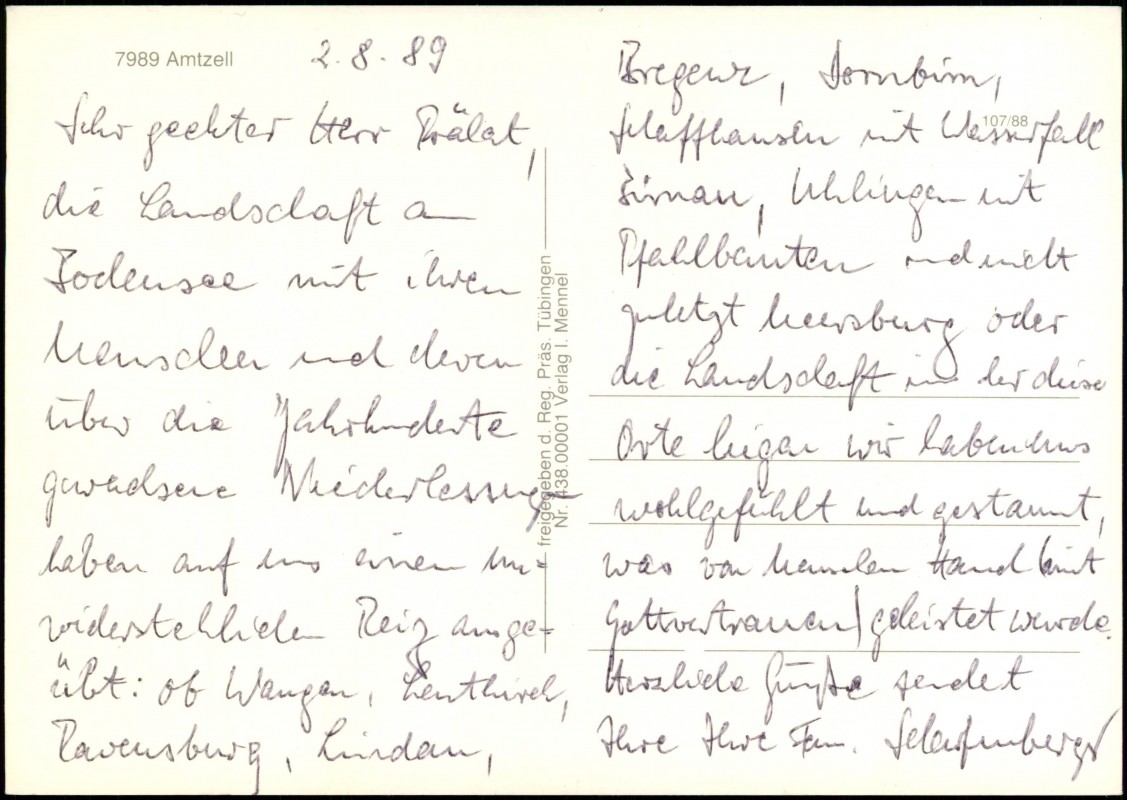 7989 Amtzell
2.8.89
Sehr geehrter Herr Prälat,
die Landschaft am
Bodensee mit ihren
Menschen und deren
über die Jahrhunderte
gewachsene Niederlassungen
haben auf uns einen un-
widerstehlichen Reiz ausge-
übt: ob Wangen, Leutkirch,
Ravensburg, Lindau,
freigegeben d. Reg. Präs. Tübingen
Nr. 438.00001 Verlag I. Mennel
107/88
Bregenz, Dornbirn,
Schaffhausen mit Wasserfall
Birnau, Uhlingen mit
Pfahlbauten und nicht
zuletzt Meersburg oder
die Landschaft in der diese
Orte liegen wir haben uns
wohlgefühlt und gestaunt,
was von Menschen Hand (mit
Gottvertrauen) geleistet wurde.
Herzliche Grüße sendet
Ihre Ihre Fam.